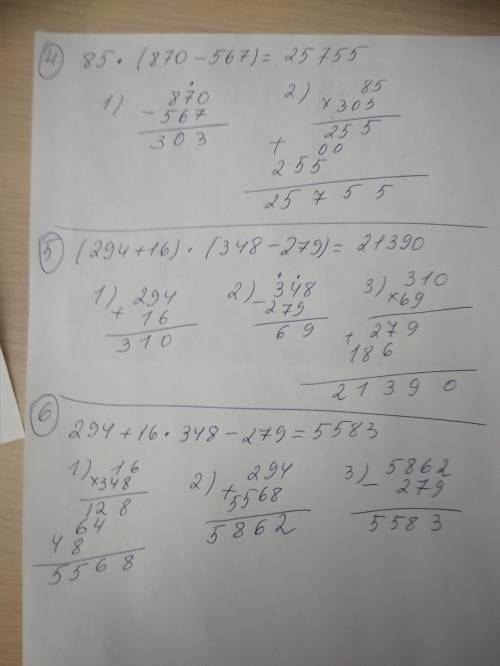 4 85 · (870 - 567) = 25755
1) 870
- 567
303
2) 85
× 303
255
+ 00
255
25755
5 (294 + 16) · (348 - 279) = 21390
1) 294
+ 16
310
2) 348
- 279
69
3) 310
× 69
+ 279
186
21390
6 294 + 16 · 348 - 279 = 5583
1) 16
× 348
128
64
48
5568
2) 294
+ 5568
5862
3) 5862
- 279
5583